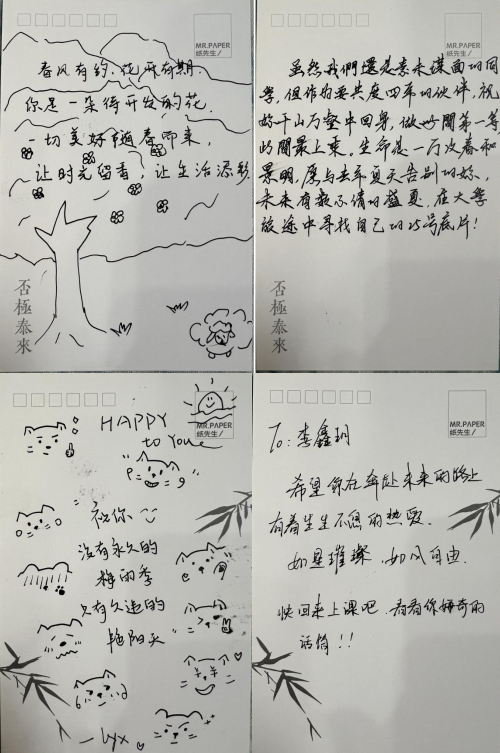 MR.PAPER
纸先生/
春风有约，花开有期，
你是一朵待开发的花
一切美好随春而来，
让时光留香，让生活添彩
否極泰來
虽然我們還是素未謀面的同
學，但作为要共度四年的伙伴，祝
千山万壑中回身，做 間第一等
間最上乘。生命 一万次春和
景明，愿与去年夏天告别的你，
未来有数不清的盛夏，在大學
旅途中寻找自己的15号底片！
否極泰來
MR.PAPER
纸先生/
HAPPY
to You
祝你
没有永久的
梅雨季
只有久违的
艳阳天
—lyx
MR.PAPER
纸先生/
To: 李鑫玥
希望你在奔赴未来的路上
有着生生不息的热爱.
如星璀璨、如风自由.
快回来上课吧，看看你桥奇的
话筒！！